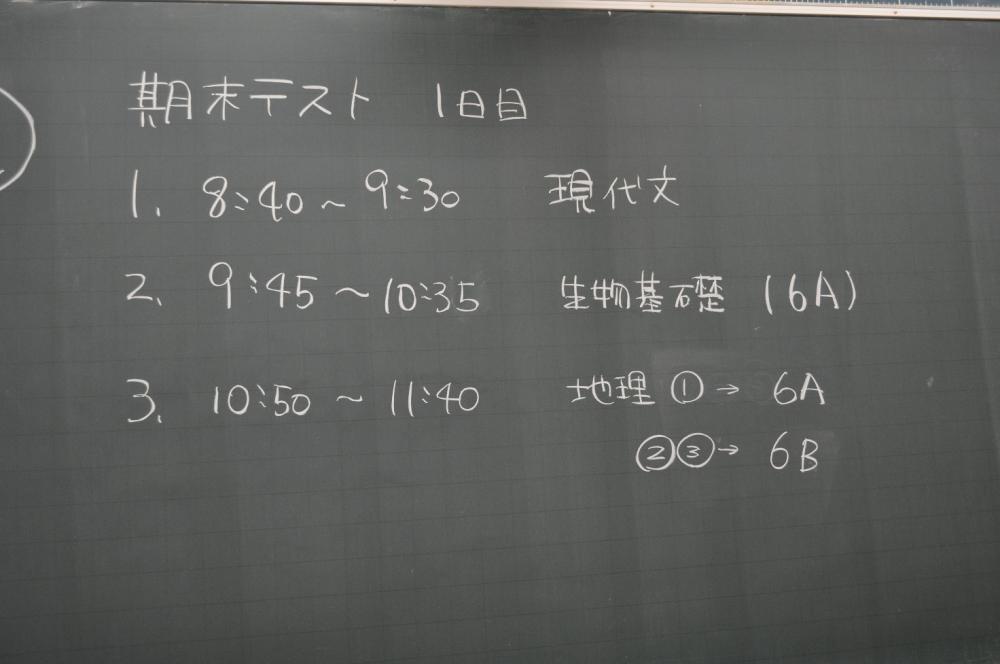 期末テスト 1日目
1. 8:40 ~ 9:30 現代文
2. 9:45 ~ 10:35 生物基礎 (6A)
3. 10:50 ~ 11:40 地理 ① → 6A
②③ → 6B